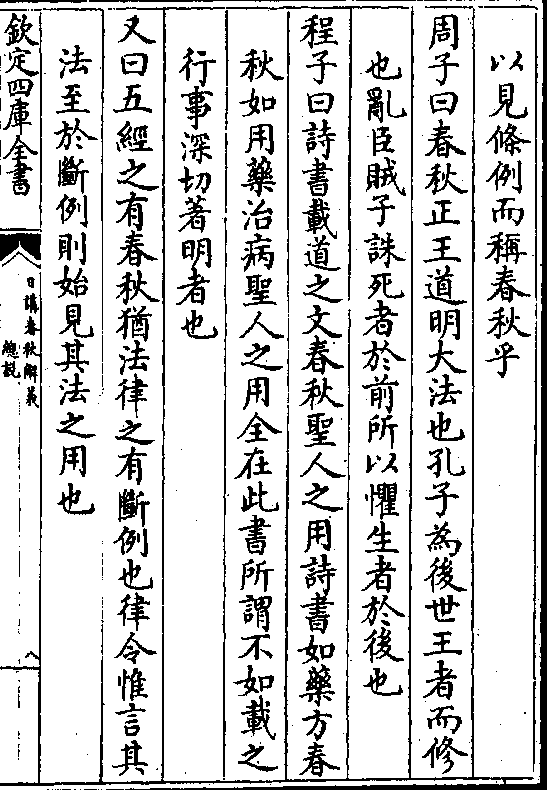 以見條例而稱春秋乎
周子曰春秋正王道明大法也孔子為後世王者而修
也亂臣賊子誅死者於前所以懼生者於後也
程子曰詩書載道之文春秋聖人之用詩書如藥方春
秋如用藥治病聖人之用全在此書所謂不如載之
行事深切著明者也
又曰五經之有春秋猶法律之有斷例也律令惟言其
法至於斷例則始見其法之用也
欽定四庫全書
日講春秋解義
總說
八